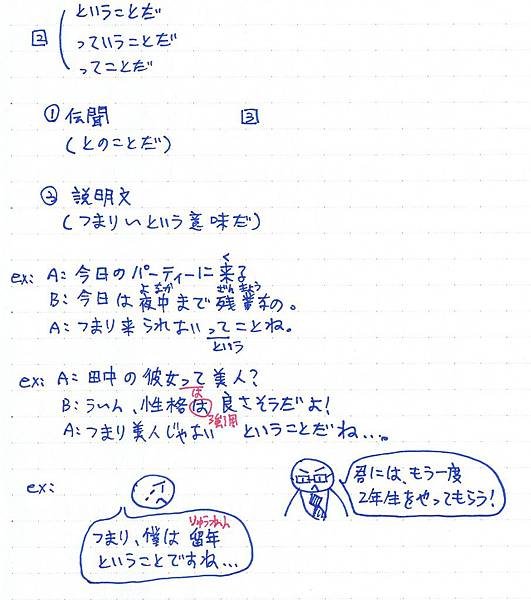 ということだ
2 っていうことだ
ってことだ
① 伝聞 3
(とのことだ)
② 説明文
(つまりいという意味だ)
ex: A: 今日のパーティーに来る
く
B: 今日は夜中まで残業なの。
よなか ざんぎょう
A: つまり来られないってことね。
という
ex: A: 田中の彼女って美人?
は
B: ううん、性格は良さそうだよ!
強調
A: つまり美人じゃないということだね...
ex:
君には、もう一度
2年生をやってもらう!
つまり、僕は留年
りゅうねん
ということですね...